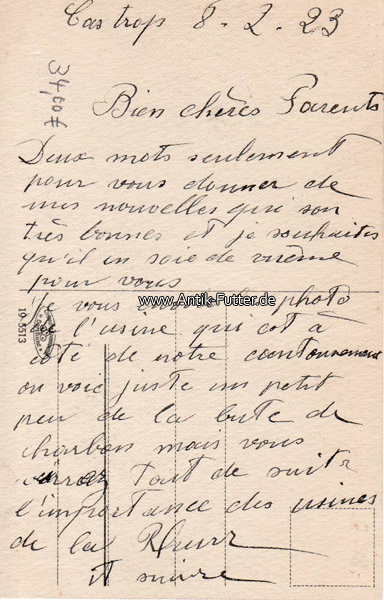 Castrop 8-2-23
34,00 €
Bien chères Parents
Deux mots seulement
pour vous donner de
mes nouvelles qui son
très bonnes et je souhaites
qu'il en soie de même
pour vous
Je vous la photo
www.Antik-Futter.de
de l'usine qui est à
coté de notre cantonnement
on voie juste un petit
peu de la bute de
charbon mais vous
verrez tout de suite
l'importance des usines
de la Rhurr
à suivre
10-5513